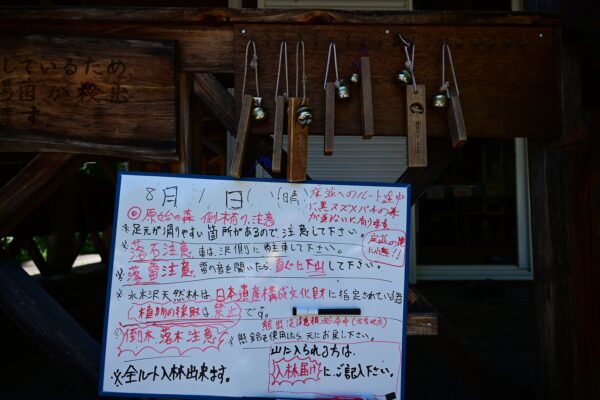 しているため、
菌が検出
ます。
8月 1日 (晴)
床並へのルート途中
に黒スズメバチの巣
◎原始の森 倒木有り、注意
※足元が滑りやすい箇所があるので注意して下さい。
※落石注意 車は、沢側に駐車して下さい。
※落雷注意、雷の音を聞いたら、直ぐに下山して下さい。
※水木沢天然林は日本遺産構成文化財に指定されている為
(植物の採取は禁止)です。
※倒木 落木 注意
※熊鈴を使用したら、元にお戻し下さい。
※全ルート入林出来ます。
山に入られる方は、
入林届けにご記入下さい。